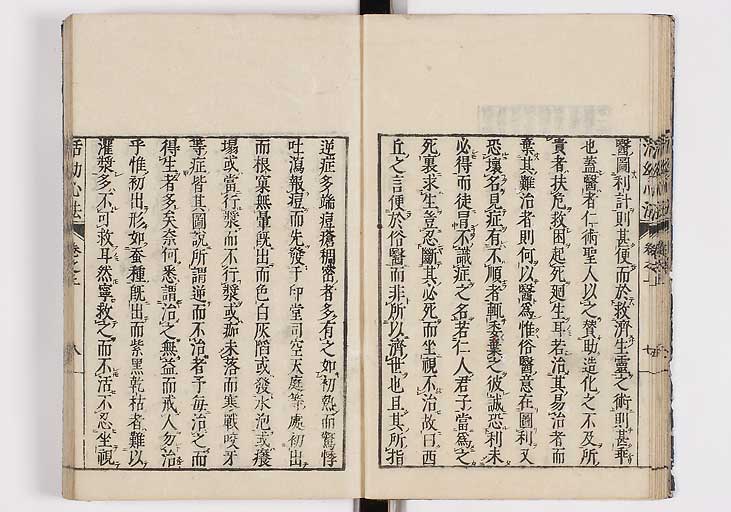 醫圖利計則甚便而於救濟生靈之術則甚乖
也蓋醫者仁術聖人以之賛助造化之不及所
貴者扶危救困起死廻生耳若治其易治者而
棄其難治者則何以醫爲惟俗醫意在圖利又
恐壞名見症有不順者輒委棄之彼誠忍利未
必得而徒冒不識症之名若仁人君子當爲之
死裏求生豈忍斷其必死而坐視不治故曰西
丘之言便於俗醫而非所以濟世也且其所指
逆症多端痘瘡稠密者多有之如初熱而驚悸
吐瀉報痘而先發于印堂司空天庭等處初出
而根窠無暈既出而色白灰陷或發水泡或癢
塌或當行漿而不行漿或痂未落而寒戰咬牙
等症皆其圖說所謂逆而不治者予每治之而
得生者多矣奈何悉謂治之無益而戒人勿治
乎惟初出形如蚕種既出而紫黑乾枯者難以
灌漿多不可救耳然寧救之而不活不忍坐視
活幼心法
卷之上
八